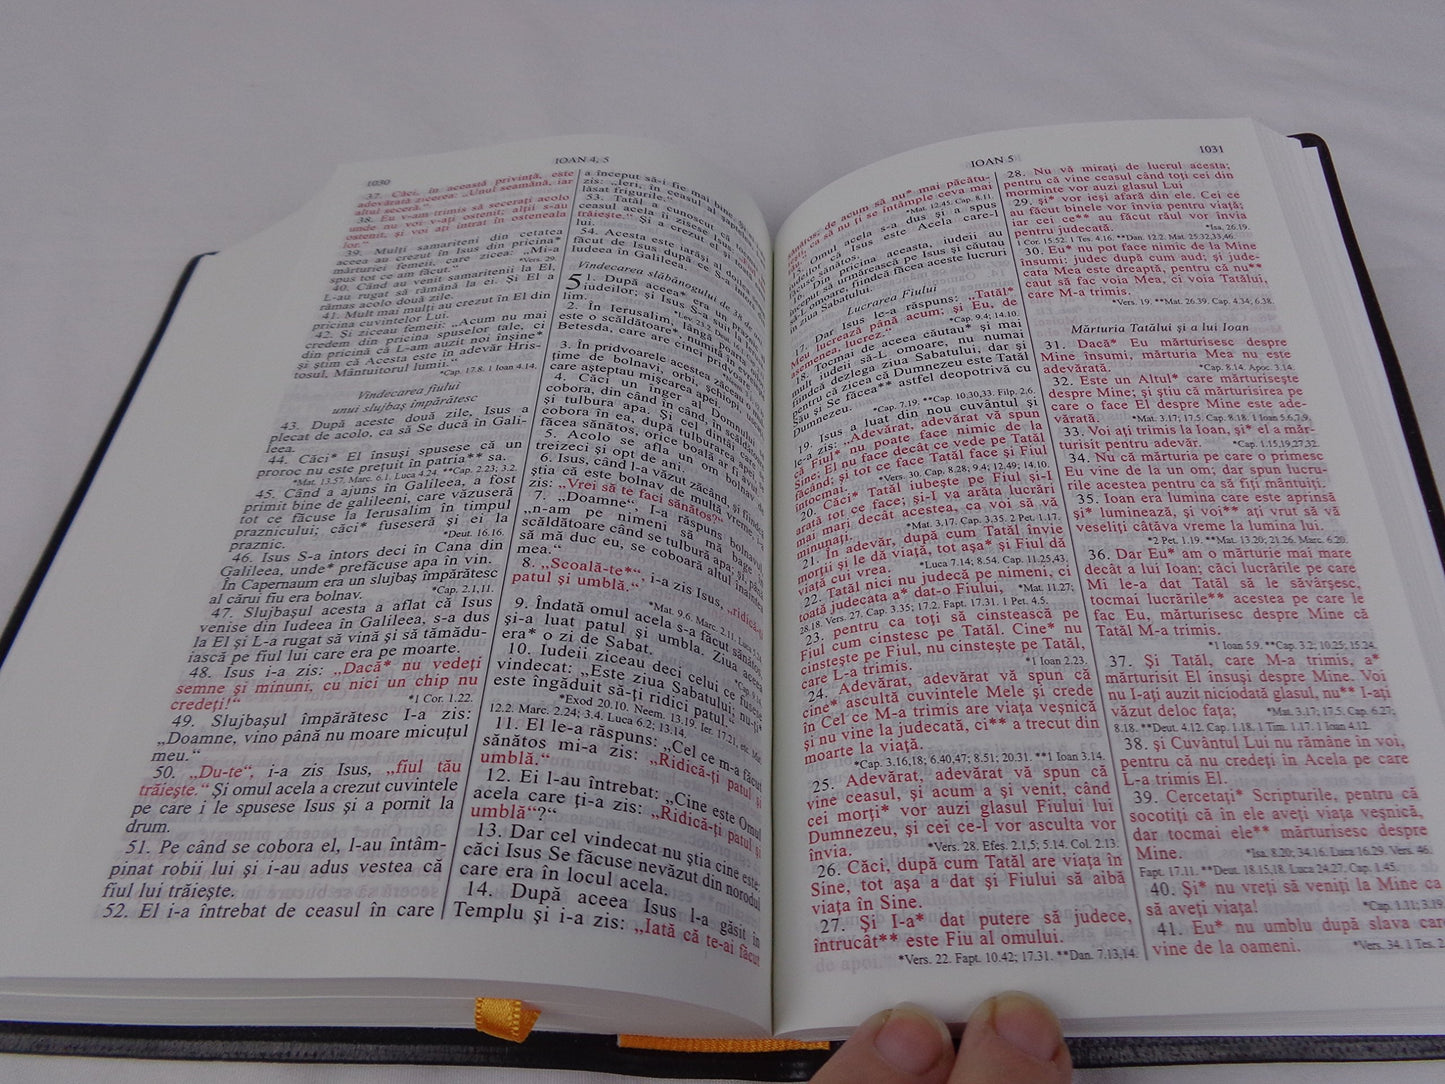 1030
IOAN 4, 5
37. Căci, în această privinţă, este
adevărată zicerea: „Unul seamănă, iar
altul seceră.“
38. Eu v-am trimis să seceraţi acolo
unde nu voi v-aţi ostenit; alţii s-au
ostenit, şi voi aţi intrat în osteneala
lor.“
39. Mulţi samariteni din cetatea
aceea au crezut în Isus din pricina*
mărturiei femeii, care zicea: „Mi-a
spus tot ce am făcut.“ *Vers. 29.
40. Când au venit samaritenii la El,
L-au rugat să rămână la ei. Şi El a
rămas acolo două zile.
41. Mult mai mulţi au crezut în El din
pricina cuvintelor Lui.
42. Şi ziceau femeii: „Acum nu mai
credem din pricina spuselor tale, ci
din pricină că L-am auzit noi înşine*
şi ştim că Acesta este în adevăr Hris-
tosul, Mântuitorul lumii.“
*Cap. 17.8. 1 Ioan 4.14.
Vindecarea fiului
unui slujbaş împărătesc
43. După aceste două zile, Isus a
plecat de acolo, ca să Se ducă în Gali-
leea.
44. Căci* El însuşi spusese că un
proroc nu este preţuit în patria** sa.
*Mat. 13.57. Marc. 6.1. Luca 4.24. **Cap. 2.23; 3.2.
45. Când a ajuns în Galileea, a fost
primit bine de galileeni, care văzuseră
tot ce făcuse la Ierusalim în timpul
praznicului; căci* fuseseră şi ei la
praznic. *Deut. 16.16.
46. Isus S-a întors deci în Cana din
Galileea, unde* prefăcuse apa în vin.
În Capernaum era un slujbaş împărătesc
al cărui fiu era bolnav. *Cap. 2.1,11.
47. Slujbaşul acesta a aflat că Isus
venise din Iudeea în Galileea, s-a dus
la El şi L-a rugat să vină şi să tămădu-
iască pe fiul lui care era pe moarte.
48. Isus i-a zis: „Dacă* nu vedeţi
semne şi minuni, cu nici un chip nu
credeţi!“ *1 Cor. 1.22.
49. Slujbaşul împărătesc I-a zis:
„Doamne, vino până nu moare micuţul
meu.“
50. „Du-te“, i-a zis Isus, „fiul tău
trăieşte.“ Şi omul acela a crezut cuvintele
pe care i le spusese Isus şi a pornit la
drum.
51. Pe când se cobora el, l-au întâm-
pinat robii lui şi i-au adus vestea că
fiul lui trăieşte.
52. El i-a întrebat de ceasul în care
a început să-i fie mai bine. Şi ei i-au
zis: „Ieri, în ceasul al şaptelea, l-au
lăsat frigurile.“
53. Tatăl a cunoscut că
ceasul acela îi zisese Isus: „Fiul tău
trăieşte.“ Şi a crezut el şi toată
lui.
54. Acesta este iarăşi al doilea
făcut de Isus, după ce S-a întors din
Iudeea în Galileea.
Vindecarea slăbănogului de 38 de
5 1. După aceea* era un praznic al
iudeilor; şi Isus S-a suit la Ierusa-
lim.
2. În Ierusalim, lângă Poarta
este o scăldătoare*, numită
Betesda, care are cinci pridvoare.
3. În pridvoarele acestea zăceau o mul-
ţime de bolnavi, orbi, şchiopi,
care aşteptau mişcarea apei.
4. Căci un înger al Domnului
cobora, din când în când, în scăldătoare
şi tulbura apa. Şi cel dintâi
cobora în ea, după tulburarea apei, se
făcea sănătos, orice boală ar fi
5. Acolo se afla un om bolnav de
treizeci şi opt de ani.
6. Isus, când l-a văzut zăcând, şi fiindcă
ştia că este bolnav de multă vreme, i-a
zis: „Vrei să te faci sănătos?“
7. „Doamne“, I-a răspuns bolnavul,
„n-am pe nimeni să mă bage în
scăldătoare când se tulbură apa; şi, până
să mă duc eu, se coboară altul înaintea
mea.“
8. „Scoală-te*“, i-a zis Isus, „ridică-ţi
patul şi umblă.“ *Mat. 9.6. Marc. 2.11. Luca 5.24.
9. Îndată omul acela s-a făcut sănătos,
şi-a luat patul şi umbla. Ziua aceea
era* o zi de Sabat. *Cap. 9.14.
10. Iudeii ziceau deci celui ce fusese
vindecat: „Este ziua Sabatului; nu-ţi*
este îngăduit să-ţi ridici patul.“
*Exod 20.10. Neem. 13.19. Ier. 17.21, etc. Mat.
12.2. Marc. 2.24; 3.4. Luca 6.2; 13.14.
11. El le-a răspuns: „Cel ce m-a făcut
sănătos mi-a zis: „Ridică-ţi patul şi
umblă.“
12. Ei l-au întrebat: „Cine este Omul
acela care ţi-a zis: „Ridică-ţi patul şi
umblă“?“
13. Dar cel vindecat nu ştia cine este;
căci Isus Se făcuse nevăzut din norodul
care era în locul acela.
14. După aceea Isus l-a găsit în
Templu şi i-a zis: „Iată că te-ai făcut
IOAN 5
1031
sănătos; de acum să nu* mai păcătu-
ieşti, ca să nu ţi se întâmple ceva mai
rău.“ *Mat. 12.45. Cap. 8.11.
15. Omul acela s-a dus şi a spus
iudeilor că Isus este Acela care-l
făcuse sănătos.
16. Din pricina aceasta, iudeii au
început să urmărească pe Isus şi căutau
să-L omoare, fiindcă făcea aceste lucruri
în ziua Sabatului.
Lucrarea Fiului
17. Dar Isus le-a răspuns: „Tatăl*
Meu lucrează până acum; şi Eu, de
asemenea, lucrez.“ *Cap. 9.4; 14.10.
18. Tocmai de aceea căutau* şi mai
mult iudeii să-L omoare, nu numai
fiindcă dezlega ziua Sabatului, dar şi
pentru că zicea că Dumnezeu este Tatăl
Său şi Se făcea** astfel deopotrivă cu
Dumnezeu. *Cap. 7.19. **Cap. 10.30,33. Filp. 2.6.
19. Isus a luat din nou cuvântul şi
le-a zis: „Adevărat, adevărat vă spun
că Fiul* nu poate face nimic de la
Sine; El nu face decât ce vede pe Tatăl
făcând; şi tot ce face Tatăl face şi Fiul
întocmai. *Vers. 30. Cap. 8.28; 9.4; 12.49; 14.10.
20. Căci* Tatăl iubeşte pe Fiul şi-I
arată tot ce face; şi-I va arăta lucrări
mai mari decât acestea, ca voi să vă
minunaţi. *Mat. 3.17. Cap. 3.35. 2 Pet. 1.17.
21. În adevăr, după cum Tatăl învie
morţii şi le dă viaţă, tot aşa* şi Fiul dă
viaţă cui vrea. *Luca 7.14; 8.54. Cap. 11.25,43.
22. Tatăl nici nu judecă pe nimeni, ci
toată judecata a* dat-o Fiului, *Mat. 11.27;
28.18. Vers. 27. Cap. 3.35; 17.2. Fapt. 17.31. 1 Pet. 4.5.
23. pentru ca toţi să cinstească pe
Fiul cum cinstesc pe Tatăl. Cine* nu
cinsteşte pe Fiul, nu cinsteşte pe Tatăl,
care L-a trimis. *1 Ioan 2.23.
24. Adevărat, adevărat vă spun că
cine* ascultă cuvintele Mele şi crede
în Cel ce M-a trimis are viaţa veşnică
şi nu vine la judecată, ci** a trecut din
moarte la viaţă.
*Cap. 3.16,18; 6.40,47; 8.51; 20.31. **1 Ioan 3.14.
25. Adevărat, adevărat vă spun că
vine ceasul, şi acum a şi venit, când
cei morţi* vor auzi glasul Fiului lui
Dumnezeu, şi cei ce-l vor asculta vor
învia. *Vers. 28. Efes. 2.1,5; 5.14. Col. 2.13.
26. Căci, după cum Tatăl are viaţa în
Sine, tot aşa a dat şi Fiului să aibă
viaţa în Sine.
27. Şi I-a* dat putere să judece,
întrucât** este Fiu al omului.
*Vers. 22. Fapt. 10.42; 17.31. **Dan. 7.13,14.
28. Nu vă miraţi de lucrul acesta;
pentru că vine ceasul când toţi cei din
morminte vor auzi glasul Lui
29. şi* vor ieşi afară din ele. Cei ce
au făcut binele vor învia pentru viaţă;
iar cei ce** au făcut răul vor învia
pentru judecată. *Isa. 26.19.
1 Cor. 15.52. 1 Tes. 4.16. **Dan. 12.2. Mat. 25.32,33,46.
30. Eu* nu pot face nimic de la Mine
însumi: judec după cum aud; şi jude-
cata Mea este dreaptă, pentru că nu**
caut să fac voia Mea, ci voia Tatălui,
care M-a trimis.
*Vers. 19. **Mat. 26.39. Cap. 4.34; 6.38.
Mărturia Tatălui şi a lui Ioan
31. Dacă* Eu mărturisesc despre
Mine însumi, mărturia Mea nu este
adevărată. *Cap. 8.14. Apoc. 3.14.
32. Este un Altul* care mărturiseşte
despre Mine; şi ştiu că mărturisirea pe
care o face El despre Mine este ade-
vărată. *Mat. 3.17; 17.5. Cap. 8.18. 1 Ioan 5.6,7,9.
33. Voi aţi trimis la Ioan, şi* el a măr-
turisit pentru adevăr. *Cap. 1.15,19,27,32.
34. Nu că mărturia pe care o primesc
Eu vine de la un om; dar spun lucru-
rile acestea pentru ca să fiţi mântuiţi.
35. Ioan era lumina care este aprinsă
şi* luminează, şi voi** aţi vrut să vă
veseliţi câtăva vreme la lumina lui.
*2 Pet. 1.19. **Mat. 13.20; 21.26. Marc. 6.20.
36. Dar Eu* am o mărturie mai mare
decât a lui Ioan; căci lucrările pe care
Mi le-a dat Tatăl să le săvârşesc,
tocmai lucrările** acestea pe care le
fac Eu, mărturisesc despre Mine că
Tatăl M-a trimis.
*1 Ioan 5.9. **Cap. 3.2; 10.25; 15.24.
37. Şi Tatăl, care M-a trimis, a*
mărturisit El însuşi despre Mine. Voi
nu I-aţi auzit niciodată glasul, nu** I-aţi
văzut deloc faţa; *Mat. 3.17; 17.5. Cap. 6.27;
8.18. **Deut. 4.12. Cap. 1.18. 1 Tim. 1.17. 1 Ioan 4.12.
38. şi Cuvântul Lui nu rămâne în voi,
pentru că nu credeţi în Acela pe care
L-a trimis El.
39. Cercetaţi* Scripturile, pentru că
socotiţi că în ele aveţi viaţa veşnică,
dar tocmai ele** mărturisesc despre
Mine. *Isa. 8.20; 34.16. Luca 16.29. Vers. 46.
Fapt. 17.11. **Deut. 18.15,18. Luca 24.27. Cap. 1.45.
40. Şi* nu vreţi să veniţi la Mine ca
să aveţi viaţa! *Cap. 1.11; 3.19
41. Eu* nu umblu după slava care
vine de la oameni. *Vers. 34. 1 Tes. 2.